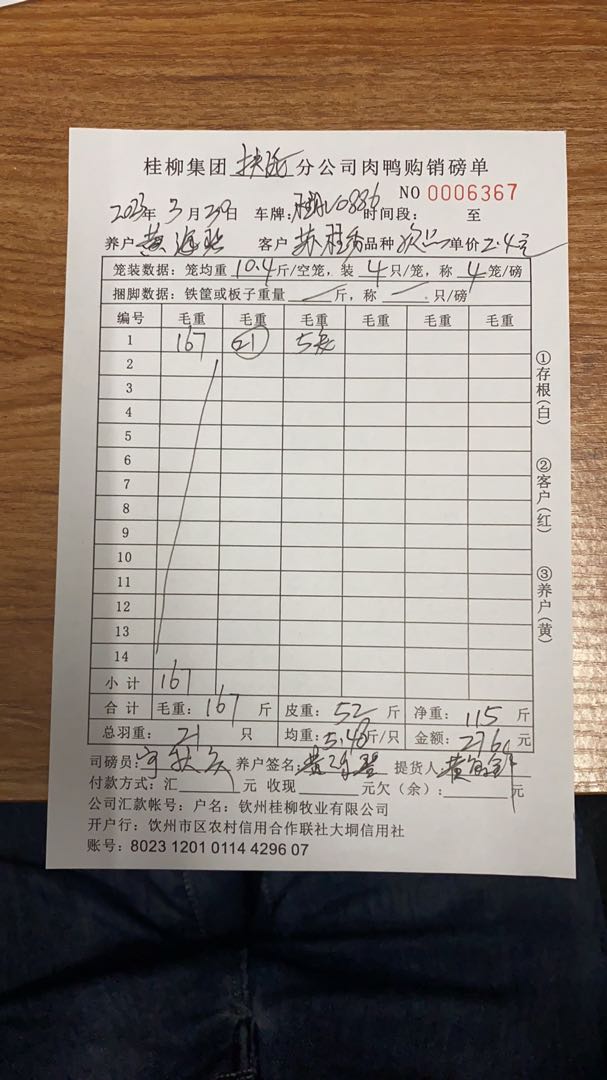 桂柳集团 分公司肉鸭购销磅单
NO 0006367
2023年3月30日 车牌: 0886 时间段: 至
养户 黄海 客户 苏桂香 品种 次品 单价 2.4元
笼装数据: 笼均重 10.4 斤/空笼, 装 4 只/笼, 称 4 笼/磅
捆脚数据: 铁筐或板子重量 斤, 称 只/磅
编号 毛重 毛重 毛重 毛重 毛重 毛重
1 167 21 5
2
3
4
5
6
7
8
9
10
11
12
13
14
小计 167
合计 毛重: 167 斤 皮重: 52 斤 净重: 115 斤
总羽重: 21 只 均重: 5.48 斤/只 金额: 276 元
司磅员: 养户签名: 提货人
付款方式: 汇 元 收现 元欠(余): 元
公司汇款帐号: 户名: 钦州桂柳牧业有限公司
开户行: 饮州市区农村信用合作联社大垌信用社
账号: 8023 1201 0114 4296 07
①存根(白)
②客户(红)
③养户(黄)